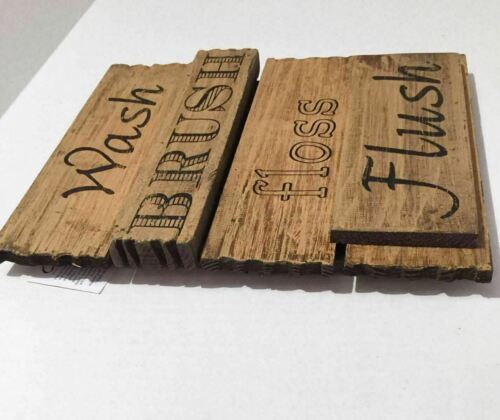 Wash
BRUSH
floss
Flush